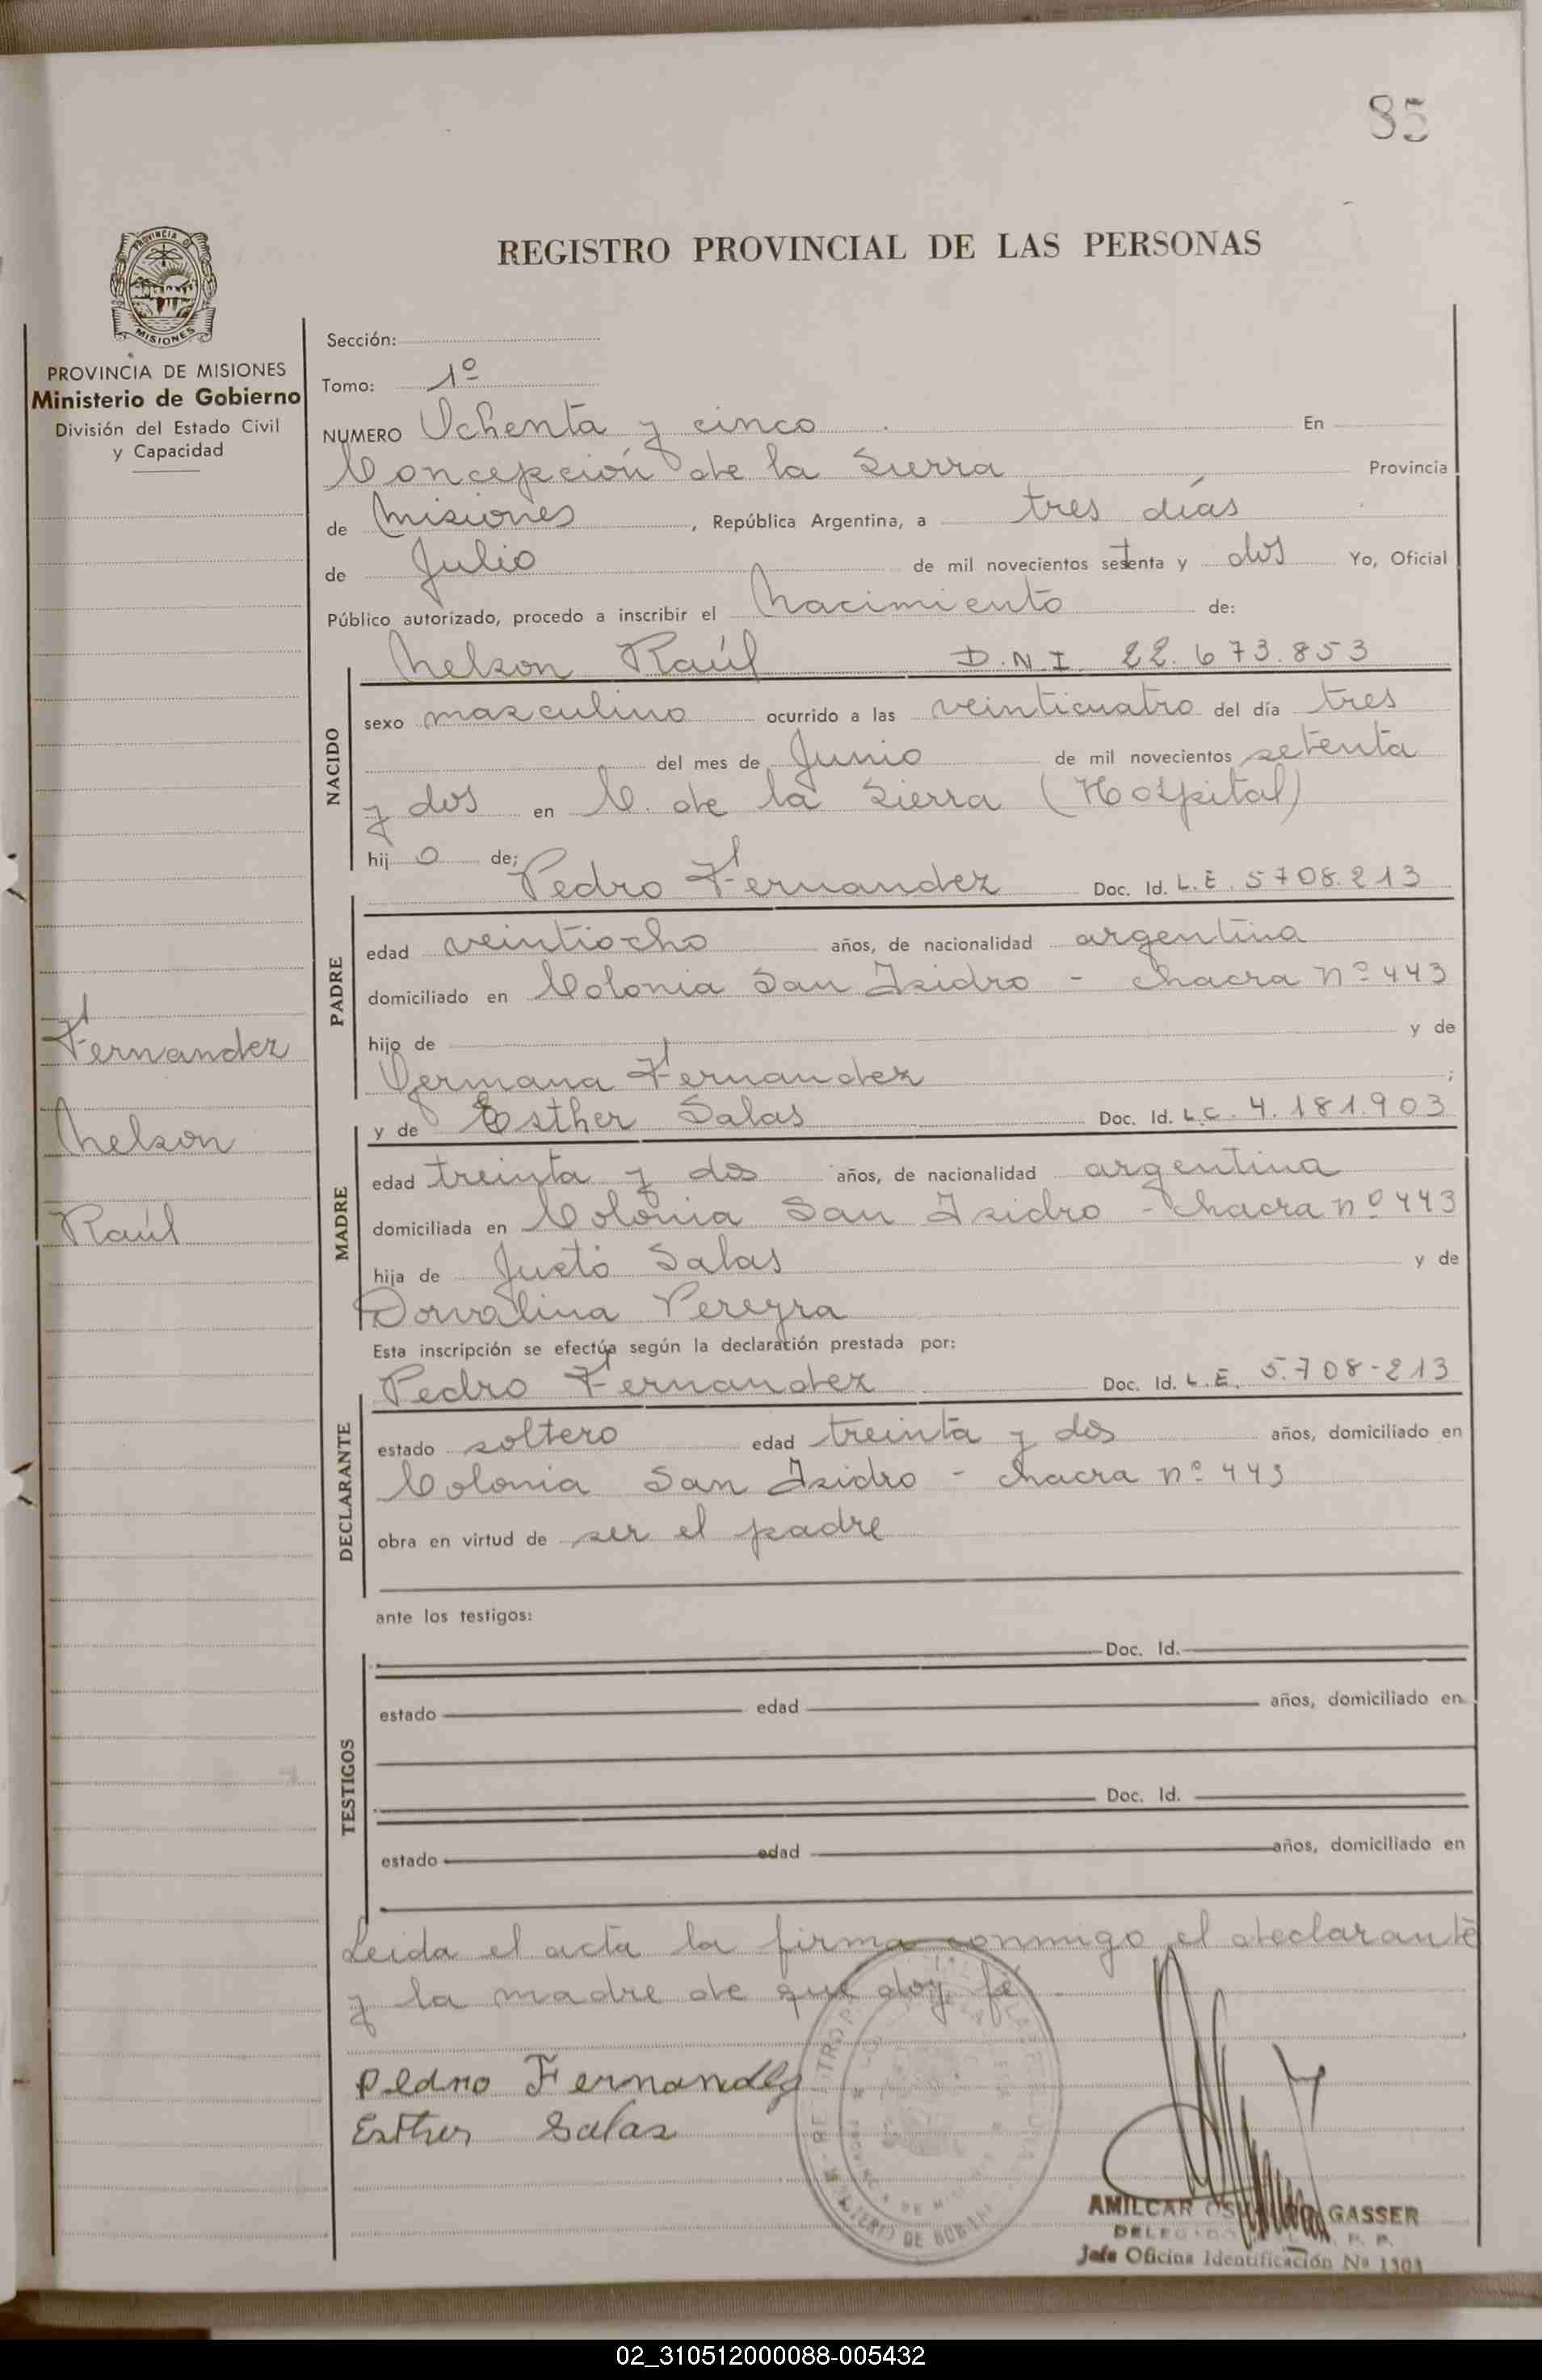 85
REGISTRO PROVINCIAL DE LAS PERSONAS
PROVINCIA DE MISIONES
Ministerio de Gobierno
División del Estado Civil
y Capacidad
Sección:
Tomo: 1º
NUMERO Ochenta y cinco En
Concepción de la Sierra Provincia
de Misiones, República Argentina, a tres días
de Julio de mil novecientos setenta y dos Yo, Oficial
Público autorizado, procedo a inscribir el Nacimiento de:
Nelson Raúl D.N.I. 22.673.853
NACIDO
sexo masculino ocurrido a las veinticuatro del día tres
del mes de Junio de mil novecientos setenta
y dos en C. de la Sierra (Hospital)
hijo de;
Pedro Fernandez Doc. Id. L.E. 5708.213
PADRE
edad veintiocho años, de nacionalidad argentina
domiciliado en Colonia San Isidro - chacra nº 443
hijo de y de
Germana Fernandez ;
y de Esther Salas Doc. Id. L.C. 4.181.903
MADRE
edad treinta y dos años, de nacionalidad argentina
domiciliada en Colonia San Isidro - chacra nº 443
hija de Justo Salas y de
Dorvalina Pereyra
Esta inscripción se efectúa según la declaración prestada por:
Pedro Fernandez Doc. Id. L.E. 5.708-213
DECLARANTE
estado soltero edad treinta y dos años, domiciliado en
Colonia San Isidro - chacra nº 443
obra en virtud de ser el padre
ante los testigos:
TESTIGOS
Doc. Id.
estado edad años, domiciliado en
Doc. Id.
estado edad años, domiciliado en
Fernandez
Nelson
Raúl
Leida el acta la firma conmigo el declarante
y la madre de que doy fé
Pedro Fernandez
Esther Salas
AMILCAR GASSER
Jefe Oficina Identificación Nº 1303
02_310512000088-005432